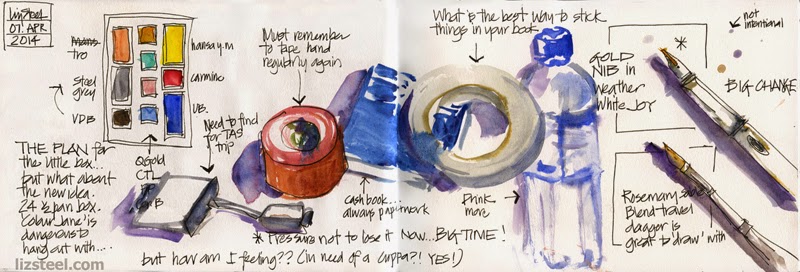 LizSteel
07. APR
2014
Mans
tro
hansa y.m
Steel
grey
carmine
UB.
VDB
QGold
CTL
THE PLAN for
the little box..
but what about
the new idea.
24 ½ pan box.
Colour Jane is
dangerous to
hang out with....
Need to find
for TAS
trip
Must remember
to tape hand
regularly again
What is the best way to stick
things in your book
cash book...
always paperwork
Drink
more
GOLD
NIB in
Weather
White Joy
*
not
intentional
BIG CHANGE
Rosemary Sable
Blend travel
dagger is
great to 'draw' with
* Pressure not to lose it NOW... BIG TIME!
but how am I feeling?? (in need of a cuppa?! YES!)
lizsteel.com